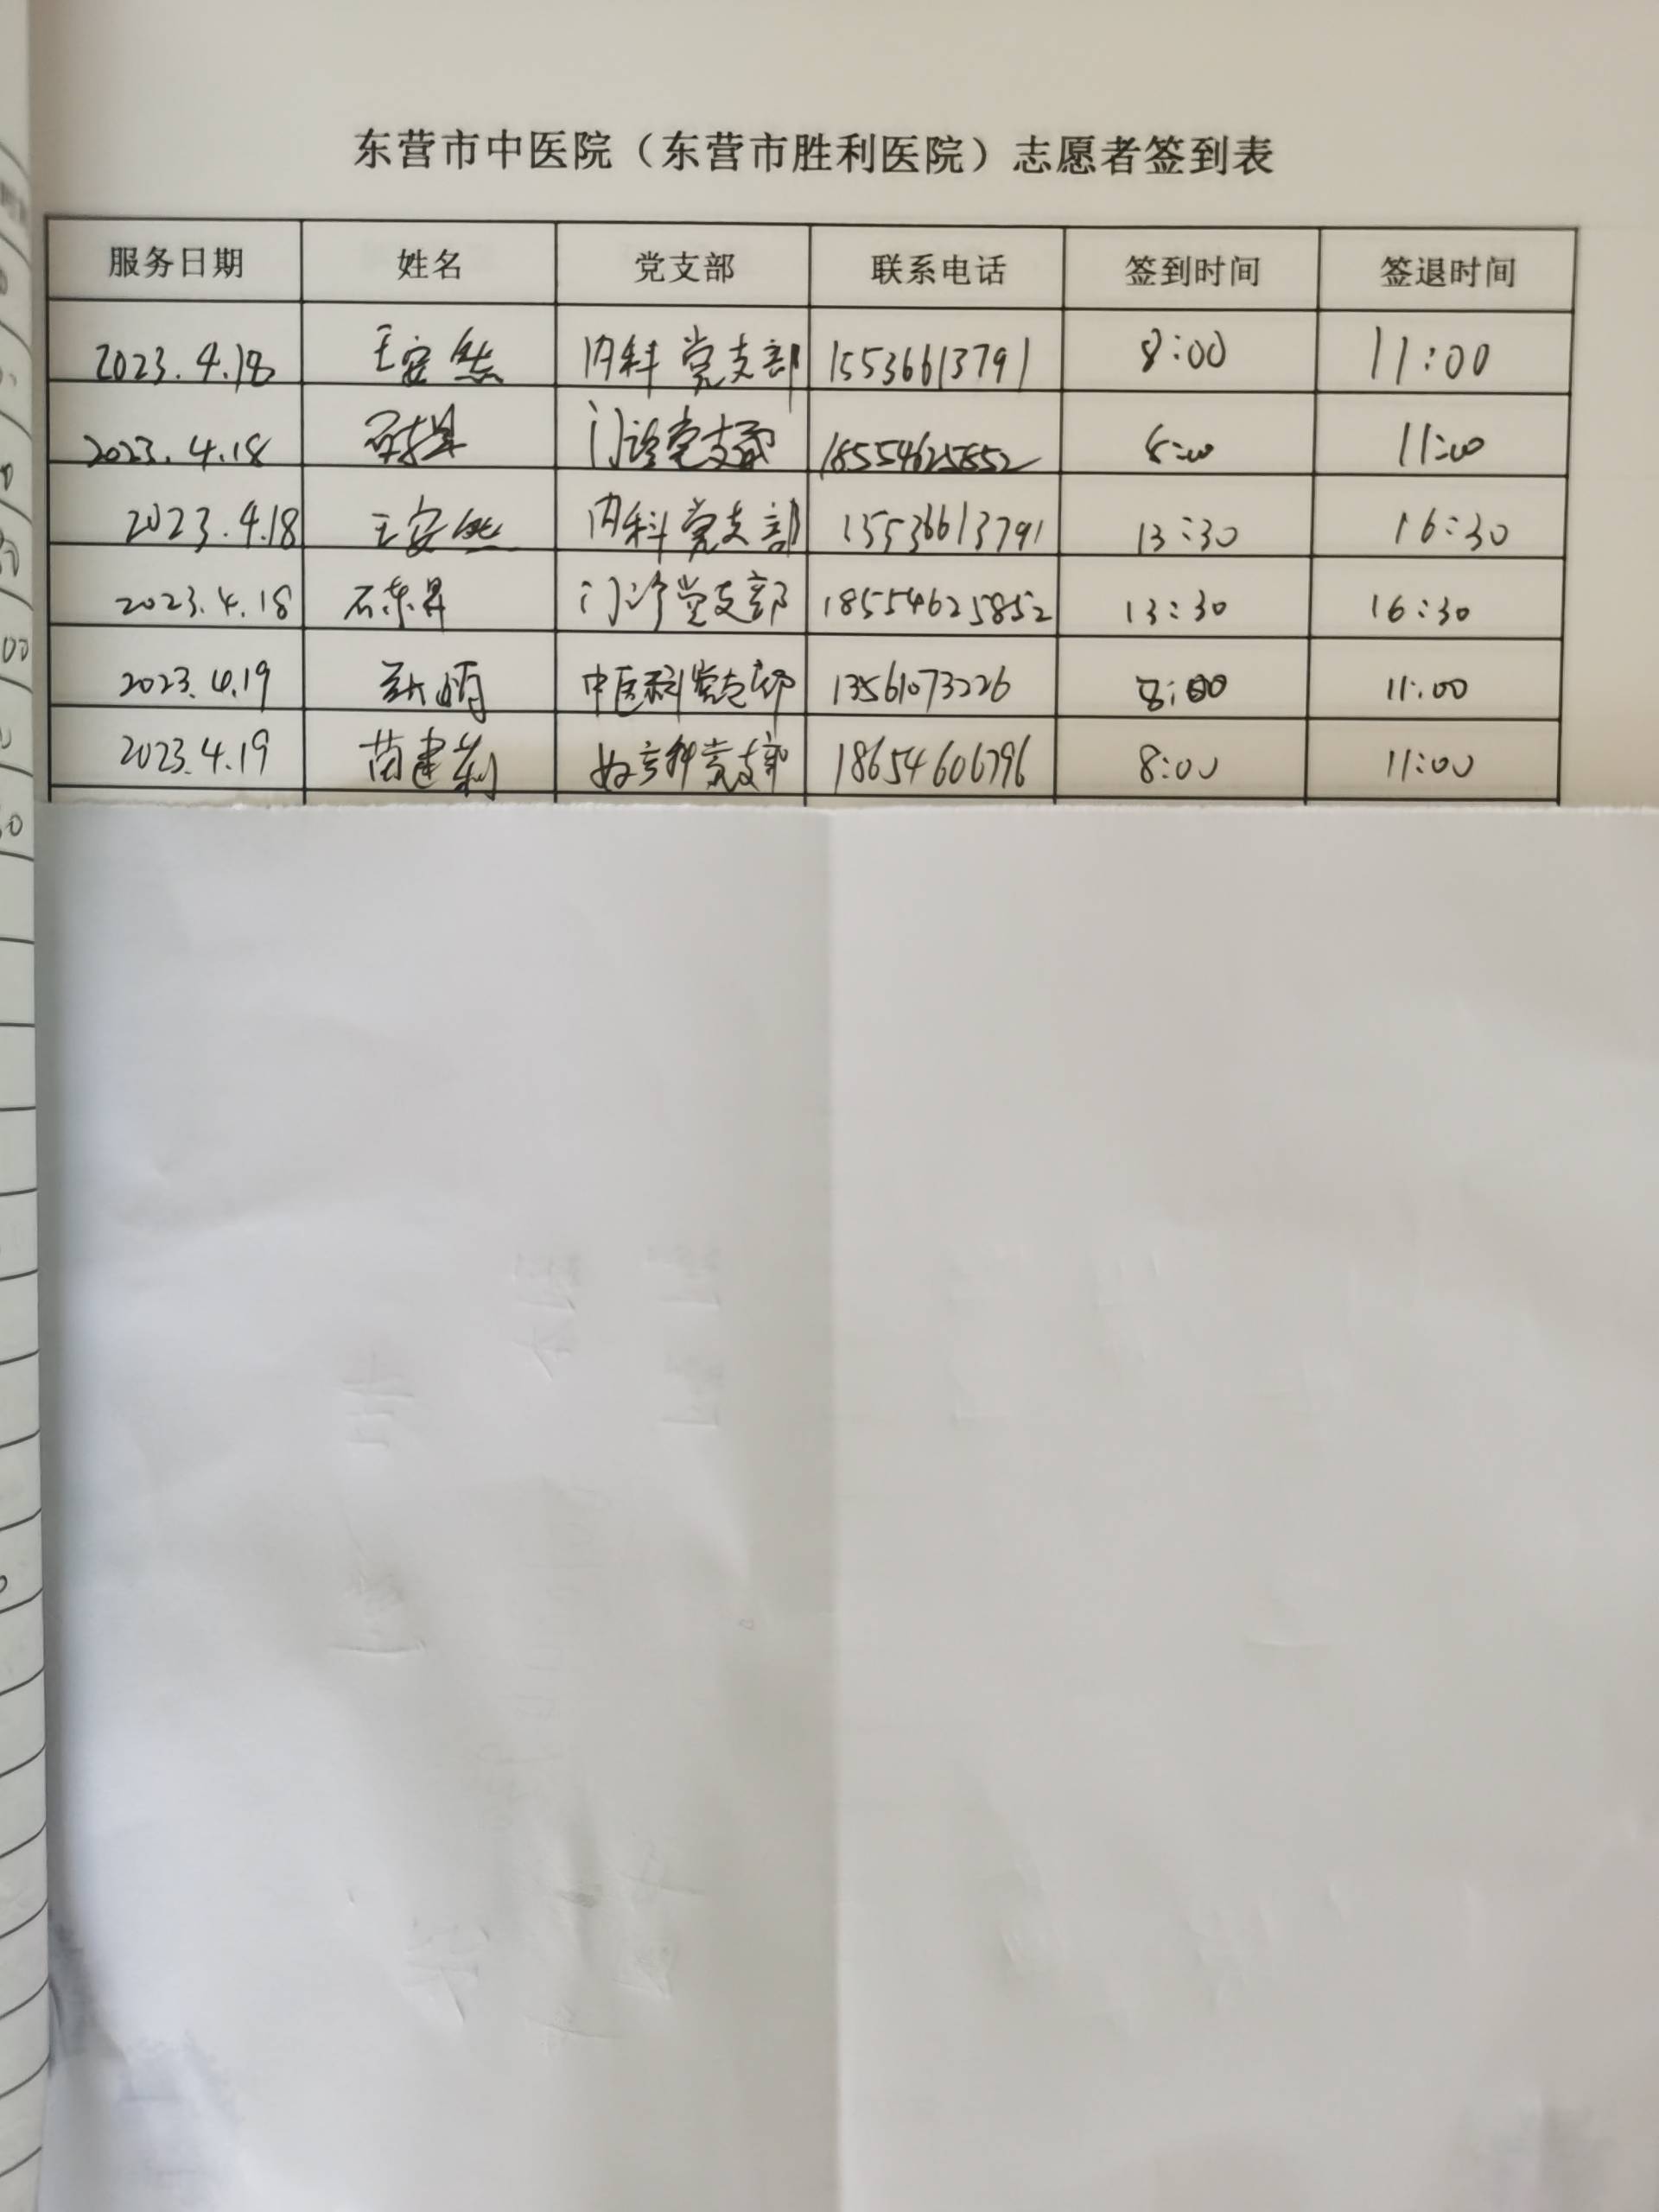 东营市中医院（东营市胜利医院）志愿者签到表
服务日期 姓名 党支部 联系电话 签到时间 签退时间
2023.4.18 王安然 内科党支部 15536613791 8:00 11:00
2023.4.18 门诊党支部 18554625852 8:00 11:00
2023.4.18 王安然 内科党支部 15536613791 13:30 16:30
2023.4.18 石东昇 门诊党支部 18554625852 13:30 16:30
2023.4.19 中医科党支部 13561073226 8:00 11:00
2023.4.19 苗建莉 妇产科党支部 18654606796 8:00 11:00